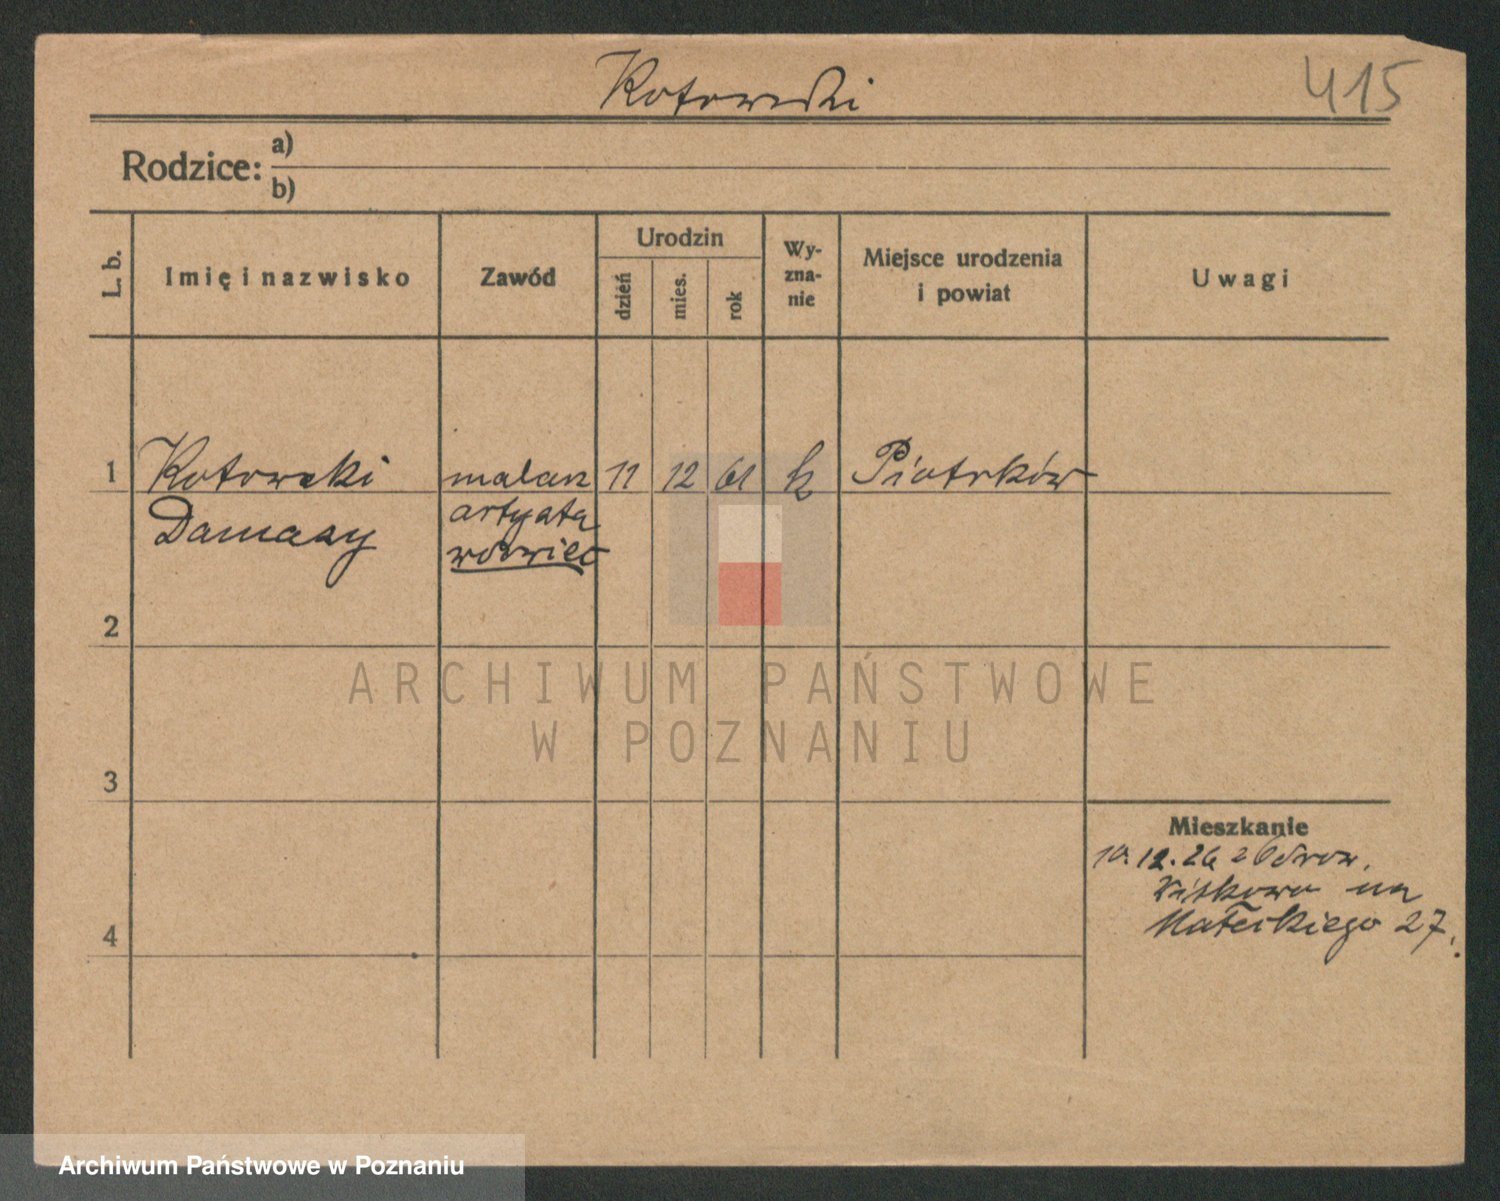 Kotowski
415
Rodzice:
a)
b)
L. b.
Imię i nazwisko
Zawód
Urodzin
dzień
mies.
rok
Wy-
zna-
nie
Miejsce urodzenia
i powiat
Uwagi
1
Kotowski
malarz
11
12
61
k
Piotrków
Damazy
artysta
wdowiec
2
ARCHIWUM PAŃSTWOWE
W POZNANIU
3
Mieszkanie
10.12.26 z
Witkowo na
Matejkiego 27.
4
Archiwum Państwowe w Poznaniu